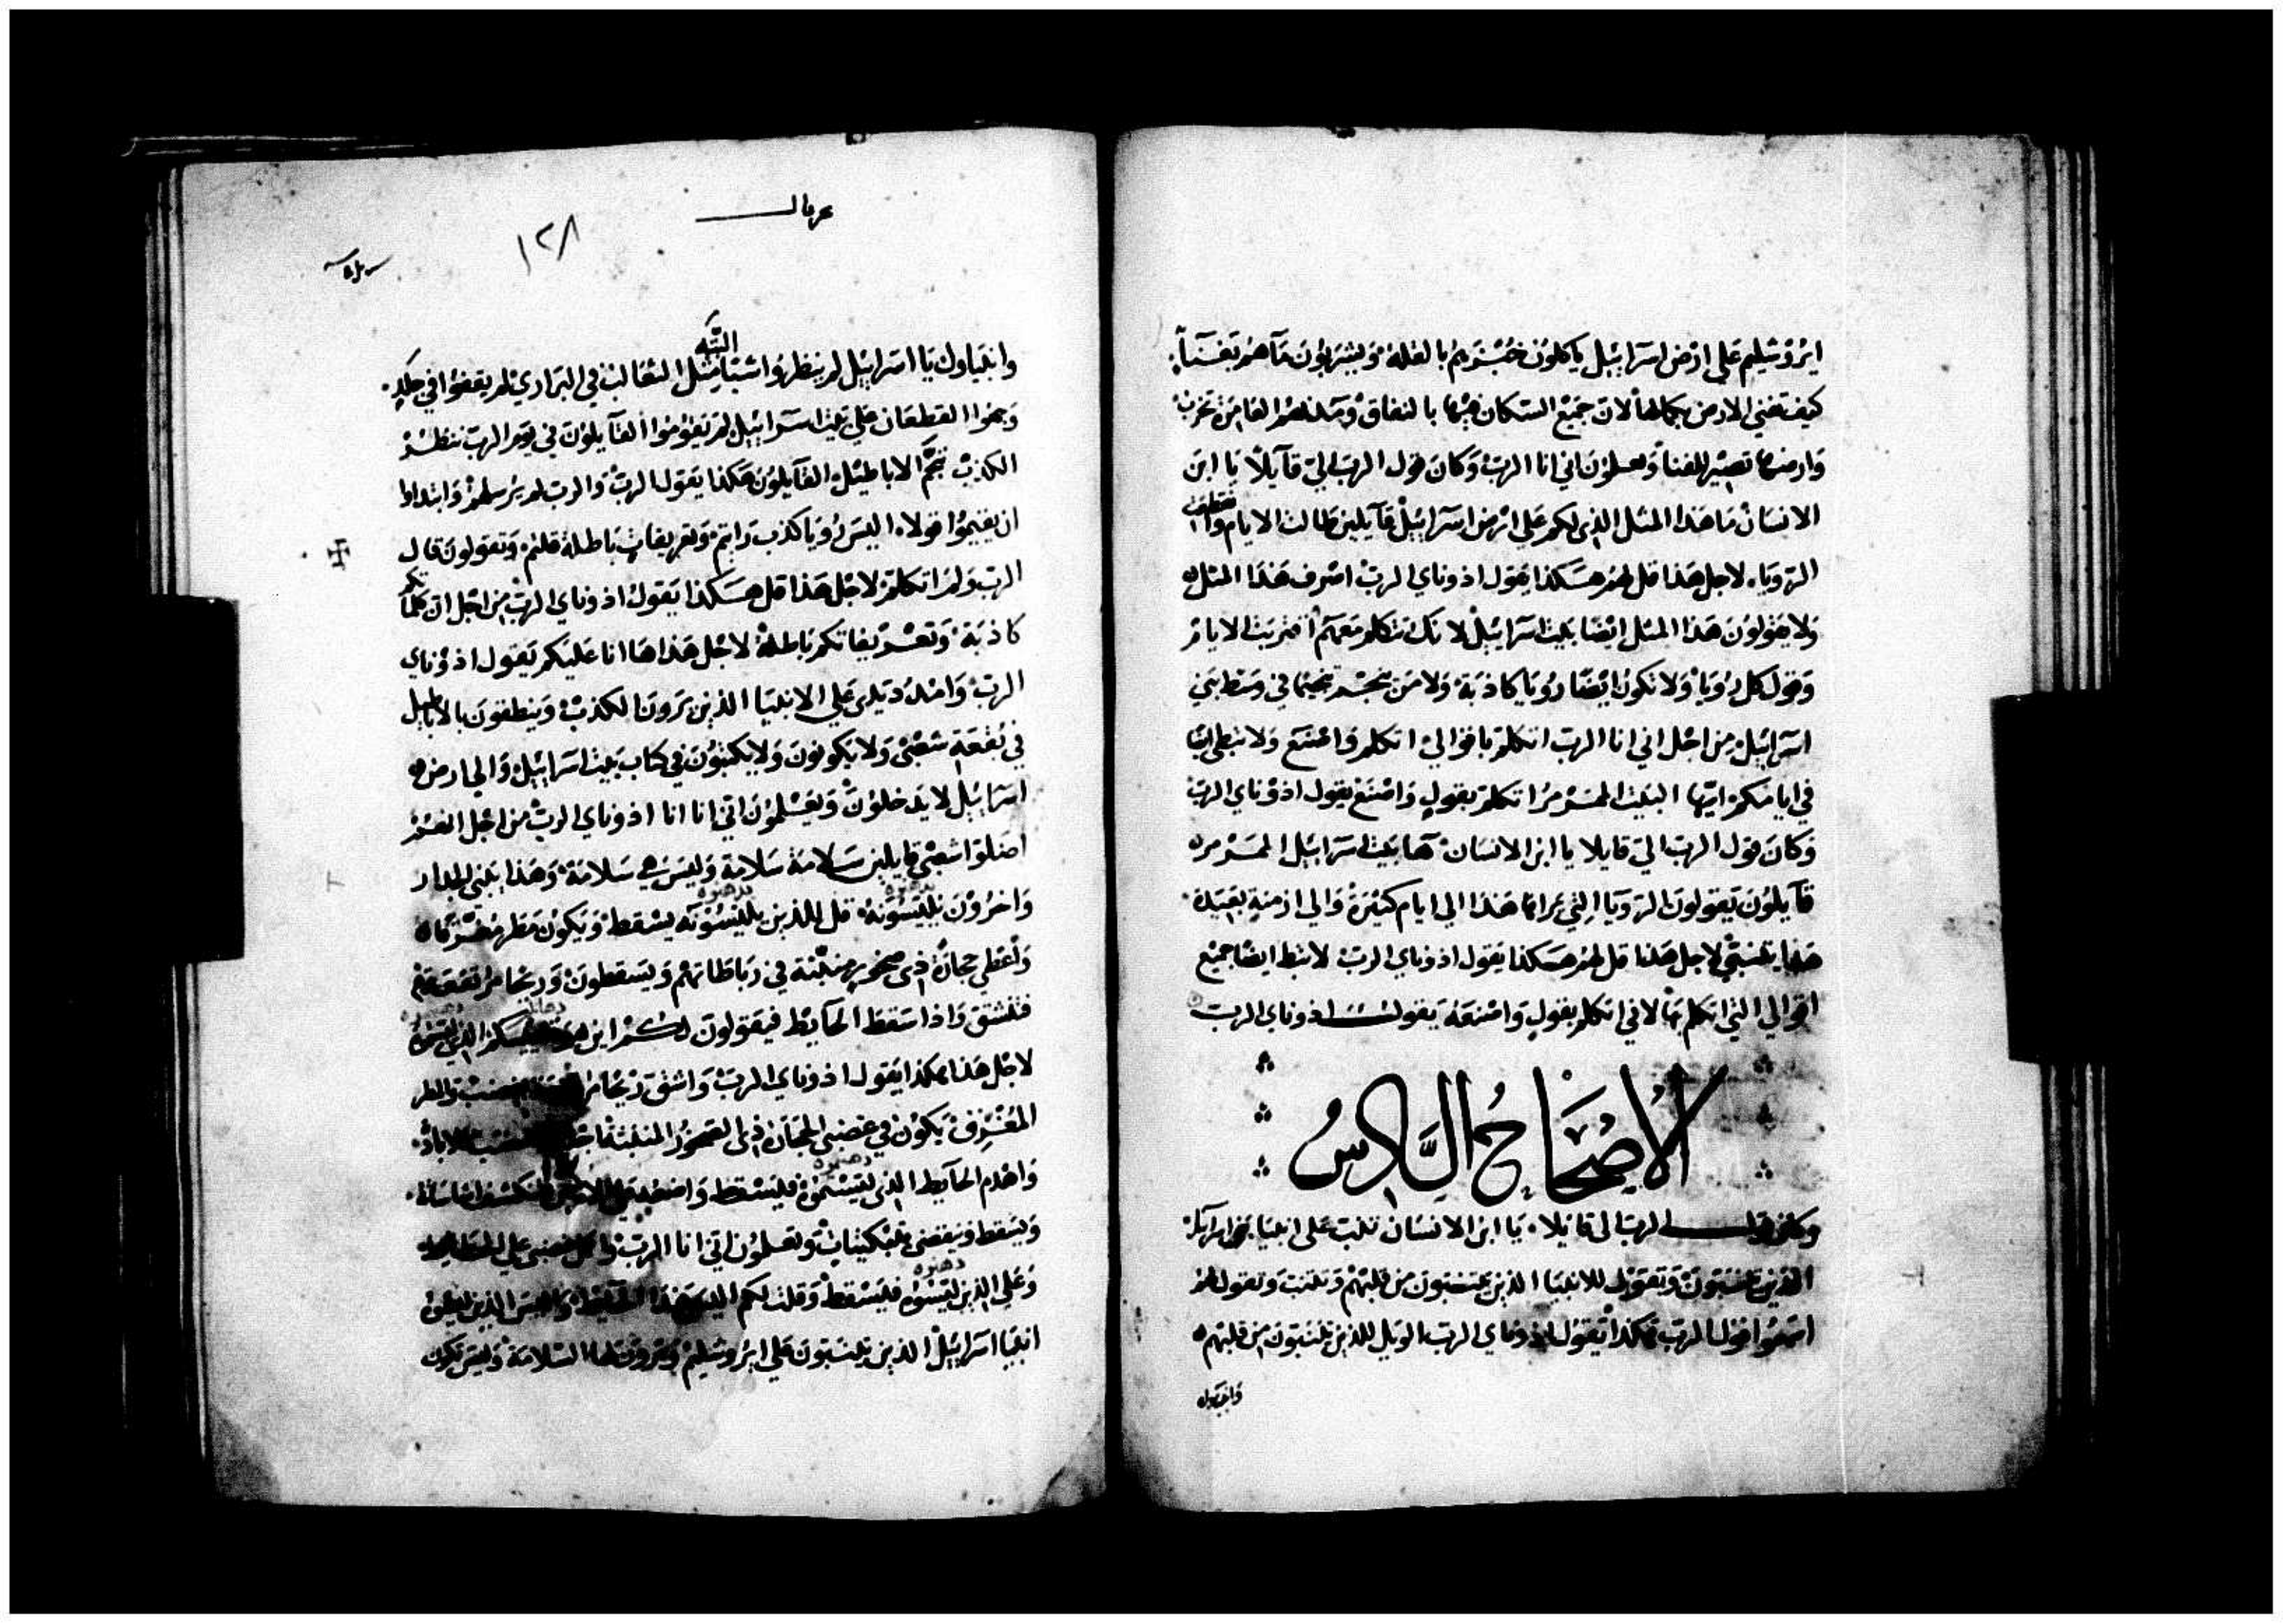 ايروشليم على ارض اسراييل ياكلون خبزهم بالقلة ويشربون ماهم بفسادٍ
كيف تفنى الارض بكمالها لان جميع السكان فيها بالنفاق ومدنهم العامرة تخرب
وارضها تصير للفنا وتعلمون انى انا الرب وكان قول الرب الىّ قايلاً يا ابن
الانسان ما هذا المثل الذى لكم على ارض اسراييل قايلين طالت الايام وانقطعت
الرويا، لاجل هذا قل لهم هكذا يقول اذوناى الرب اصرف هذا المثل
ولا يقولون هذا المثل ايضا بيت اسراييل لانك تتكلم معهم اقتربت الايام
وقول كل رويا ولا تكون ايضا رويا كاذبة ولا من ينجم تنجيما فى وسط بنى
اسراييل من اجل انى انا الرب اتكلم باقوالى اتكلم واصنع ولا تبطى ايضا
فى ايامكم ايها البيت المرمر اتكلم بقولٍ واصنع يقول اذوناى الرب
وكان قول الرب الىّ قايلا يا ابن الانسان ها بيت اسراييل المرمر
قايلون يقولون الرويا التى يراها هذا الى ايام كثيرة والى ازمنة بعيدة
هذا يتنبى لاجل هذا قل لهم هكذا يقول اذوناى الرب لا تبطا ايضا جميع
اقوالى التى اتكلم بها لانى اتكلم بقولٍ واصنعه يقول اذوناى الرب
الاصحاح السادس
وكان قول الرب الى قايلا، يا ابن الانسان تنبت على انبيا بنى اسراييل
الذين يتنبون وتقول للانبيا الذين يتنبون من قلبهم وتتنبت وتقول لهم
اسمعوا قول الرب هكذا يقول اذوناى الرب الويل للذين يتنبون من قلبهم
١٢٨
وانبياوك يا اسراييل لم ينظروا شيا البتة مثل الثعالب فى البرارى لم يقفوا فى جلدٍ
وجمعوا القطعان على بيت اسراييل لم يقوموا القايلون فى يوم الرب ننظر
الكذب نتجم الاباطيل القايلون هكذا يقول الرب والرب لم يرسلهم وابتداوا
ان يقيموا قولا، اليس رويا كذب رايتم وتعريفاتٍ باطلة قلتم، وتقولون قال
الرب ولم اتكلم لاجل هذا قل هكذا يقول اذوناى الرب من اجل ان كلماتكم
كاذبة، وتعريفاتكم باطلة لاجل هذا ها انا عليكم يقول اذوناى
الرب وامد يدى على الانبيا الذين يرون الكذب وينطقون بالاباطيل
فى بقعة شعبى ولا يكونون ولا يكتبون فى كتاب بيت اسراييل والى ارض
اسراييل لا يدخلون ويعلمون انى انا اذوناى الرب من اجل انهم
اضلوا شعبى قايلين سلامة سلامة وليس هى سلامة، وهذا يبنى الجدار
واخرون يليسونه، قل للذين يليسونه يسقط ويكون مطر مغرقا
واعطى حجارة ذى صخور منبثة فى رباطاتهم ويسقطون وريحا مرتفعة
فتنشق واذا سقط الحايط فيقولون لكم اين هو
لاجل هذا هكذا يقول اذوناى الرب واشق ريحا
المغرق يكون فى غضبى الحجارة ذى الصخور المنبثة
واهدم الحايط الذى ليستموه فليسقط
ويسقط ويقضى بتبكيتاتٍ وتعلمون انى انا الرب
وعلى الذين ليسوه فليسقط وقلت لكم
انبيا اسراييل الذين يتنبون على ايروشليم ويرون لها السلامة وليس تكون